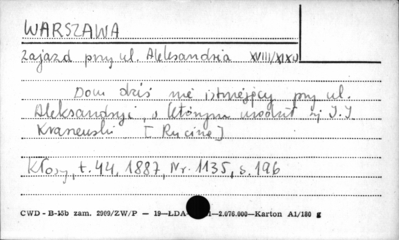 WARSZAWA
Zajazd przy ul. Aleksandria XVIII/XIX w
Dom dziś nie istniejący przy ul.
Aleksandryi, w którym urodził się J.I.
Kraszewski [Rycina]
Kłosy, t. 44, 1887, Nr. 1135, s. 196
CWD - B-15b zam. 2909/ZW/P — 19—ŁDA 1—2.076.000—Karton A1/180 g